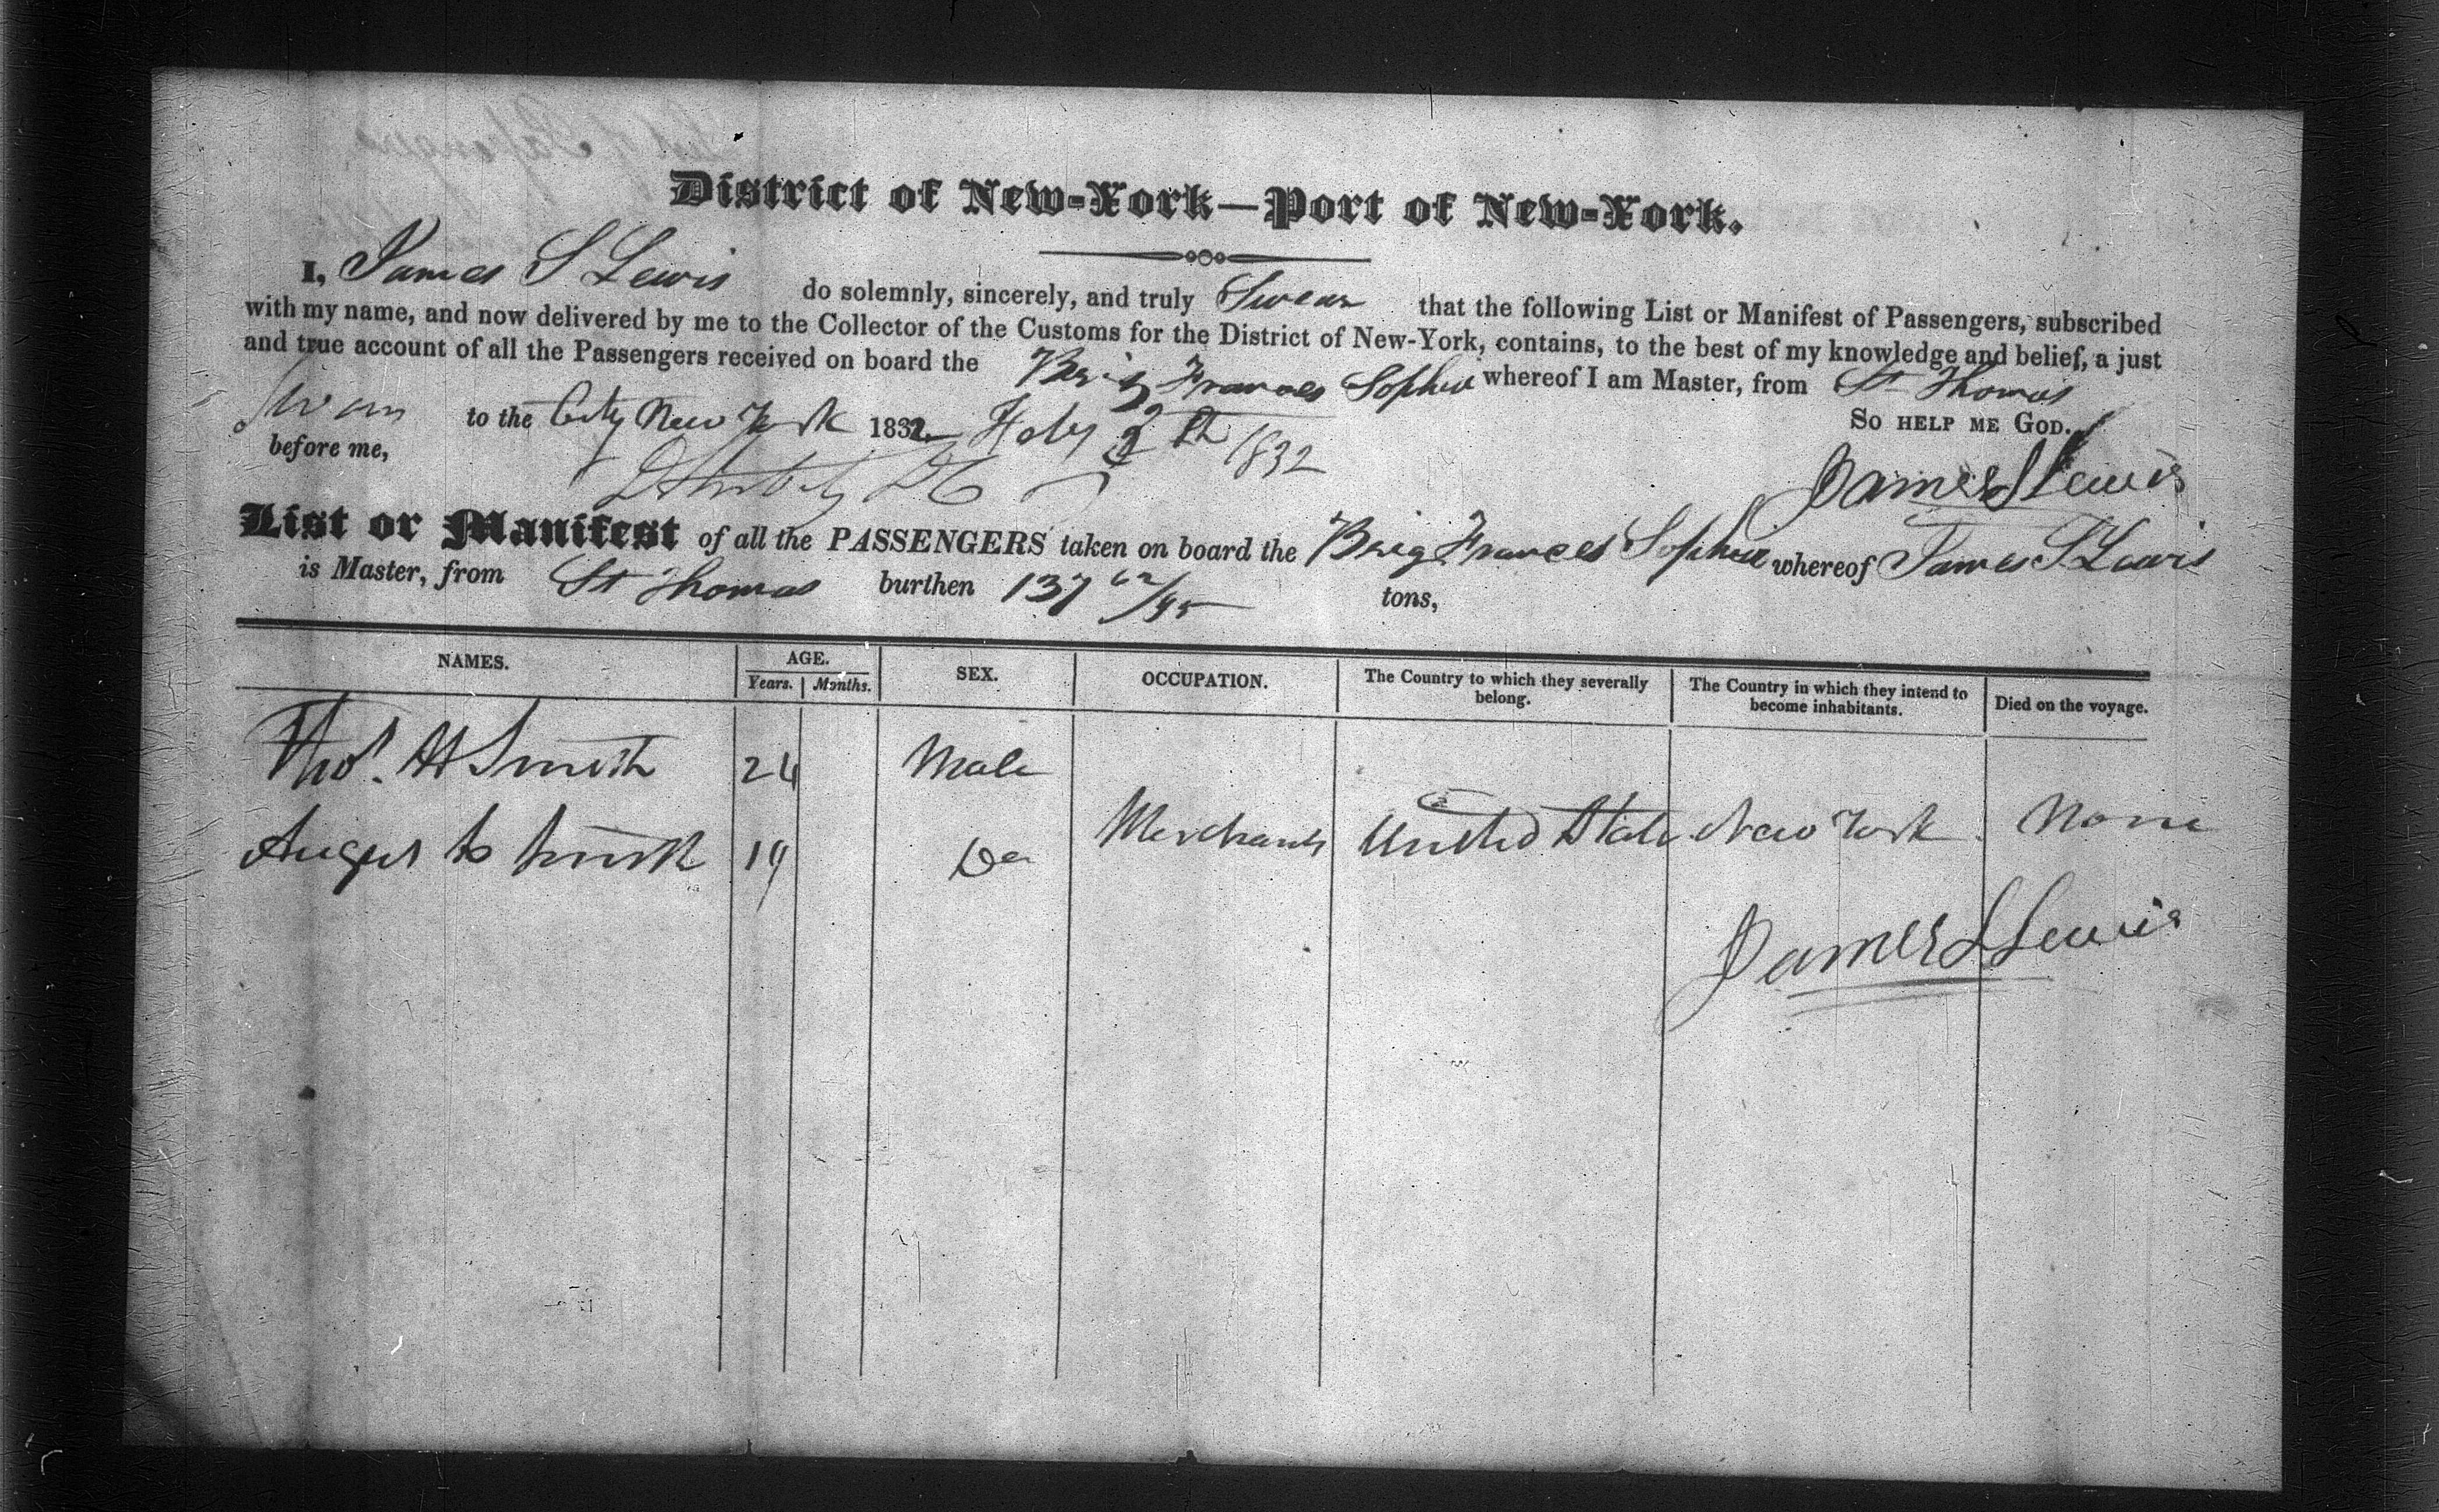 District of New-York—Port of New-York.
I, James S Lewis do solemnly, sincerely, and truly Swear that the following List or Manifest of Passengers, subscribed
with my name, and now delivered by me to the Collector of the Customs for the District of New-York, contains, to the best of my knowledge and belief, a just
and true account of all the Passengers received on board the Brig Frances Sophia whereof I am Master, from St Thomas
Sworn to the City New York 1832 Feby 2th 1832 So help me God.
before me, James S Lewis
List or Manifest of all the PASSENGERS taken on board the Brig Frances Sophia whereof James S Lewis
is Master, from St Thomas burthen 137 62/95 tons,
NAMES. AGE. SEX. OCCUPATION. The Country to which they severally belong. The Country in which they intend to become inhabitants. Died on the voyage.
Years. Months.
Thos. H Smith 24 Male
Merchants United State New York None
Augus to Smith 19 Do
James S Lewis